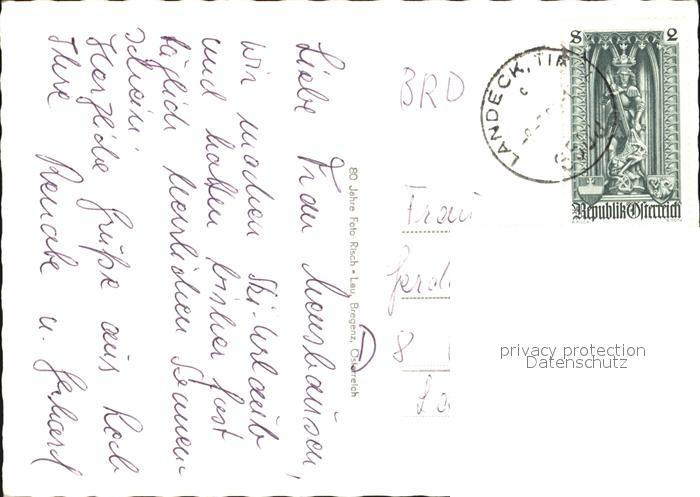 Liebe Frau Monshausen,
wir machen Ski-Urlaub
und hatten bisher fast
täglich herrlichen Sonnen
schein.
Herzliche Grüße aus
Ihre Renate u. Gerhard
80 Jahre Foto Risch-Lau, Bregenz, Österreich
BRD
Frau
8
LANDECK, TIR
S 2
Republik Österreich
privacy protection
Datenschutz